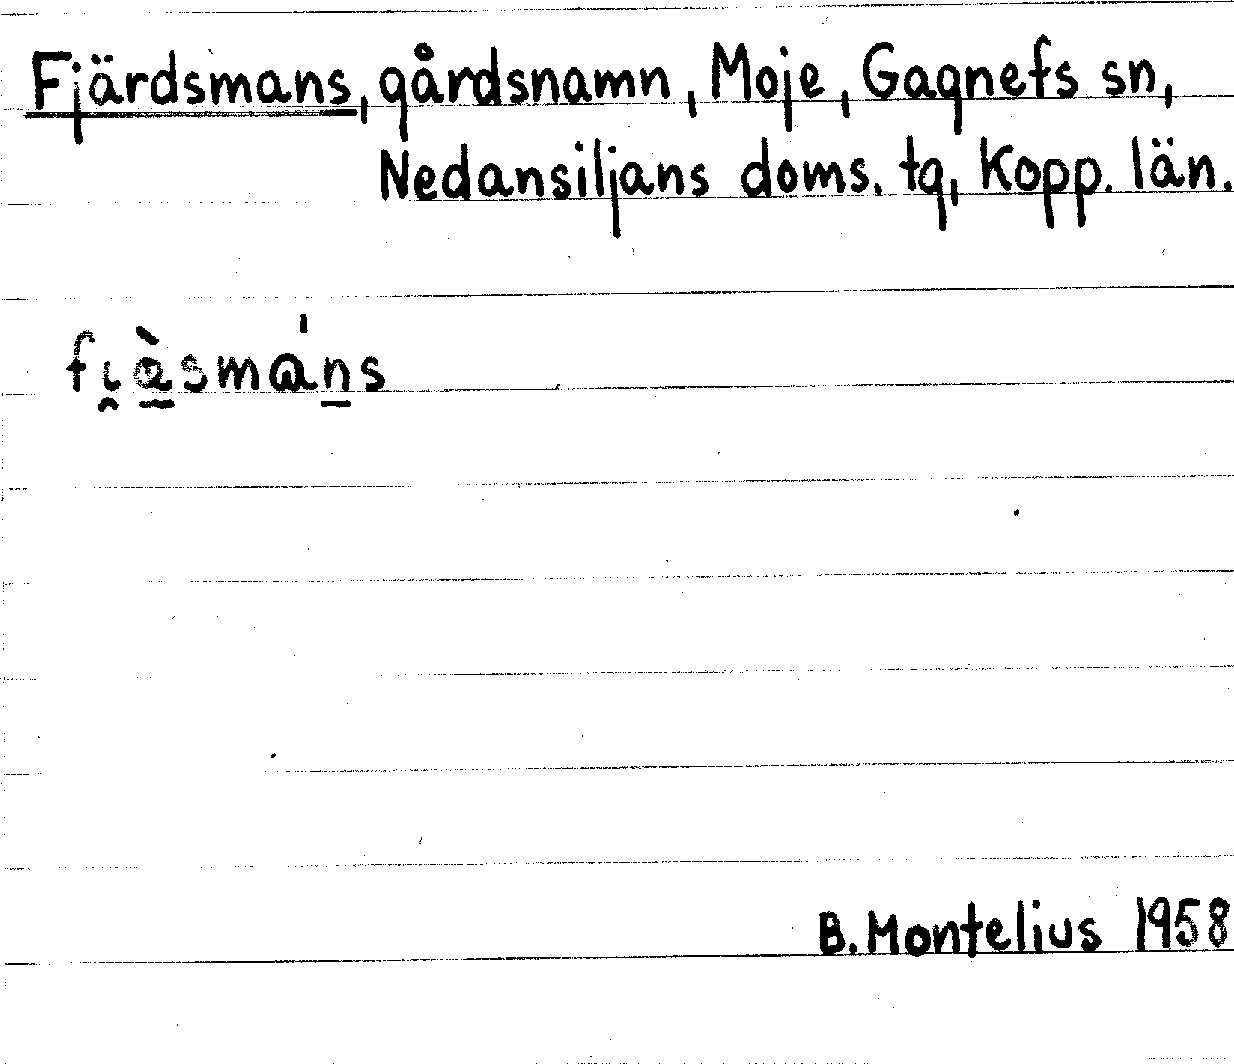 Fjärdsmans, gårdsnamn, Moje, Gagnefs sn,
Nedansiljans doms. tg, Kopp. län.
fi̯à̱sma̍ṉs
B. Montelius 1958